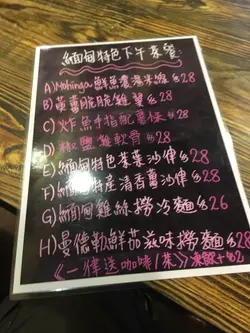 緬甸特色下午茶餐:
A) Mohinga 鮮魚濃湯米線 $28
B) 黃薑脆脆雞翼 $28
C) 炸魚手指配薯條 $28
D) 椒鹽雞軟骨 $28
E) 緬甸特色茶葉沙律 $28
F) 緬甸特產清香薑沙律 $28
G) 緬甸雞絲撈冷麵 $26
H) 曼德勒鮮茄滋味撈麵 $28
《一律送咖啡/茶》凍飲+$2